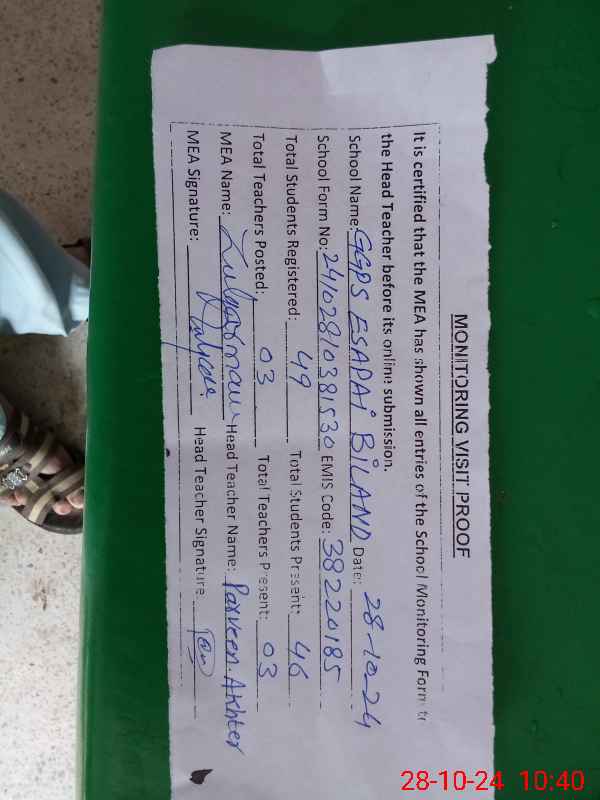 MONITORING VISIT PROOF
It is certified that the MEA has shown all entries of the School Monitoring Form
the Head Teacher before its online submission.
School Name: GGPS ESAPAi BiLAND Date: 28-10-24
School Form No: 24102810381530 EMIS Code: 38220185
Total Students Registered: 49 Total Students Present: 46
Total Teachers Posted: 03 Total Teachers Present: 03
MEA Name: Head Teacher Name: Parveen Akhter
MEA Signature: Head Teacher Signature:
28-10-24 10:40